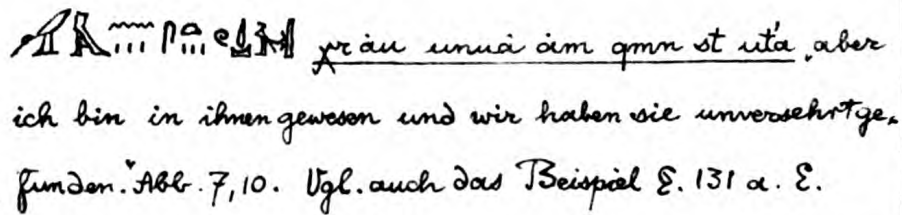 χr ȧu unuȧ ȧm qmn st ut'a „aber
ich bin in ihnen gewesen und wir haben sie unversehrt ge-
funden.“ Abb. 7,10. Vgl. auch das Beispiel §. 131 a. E.